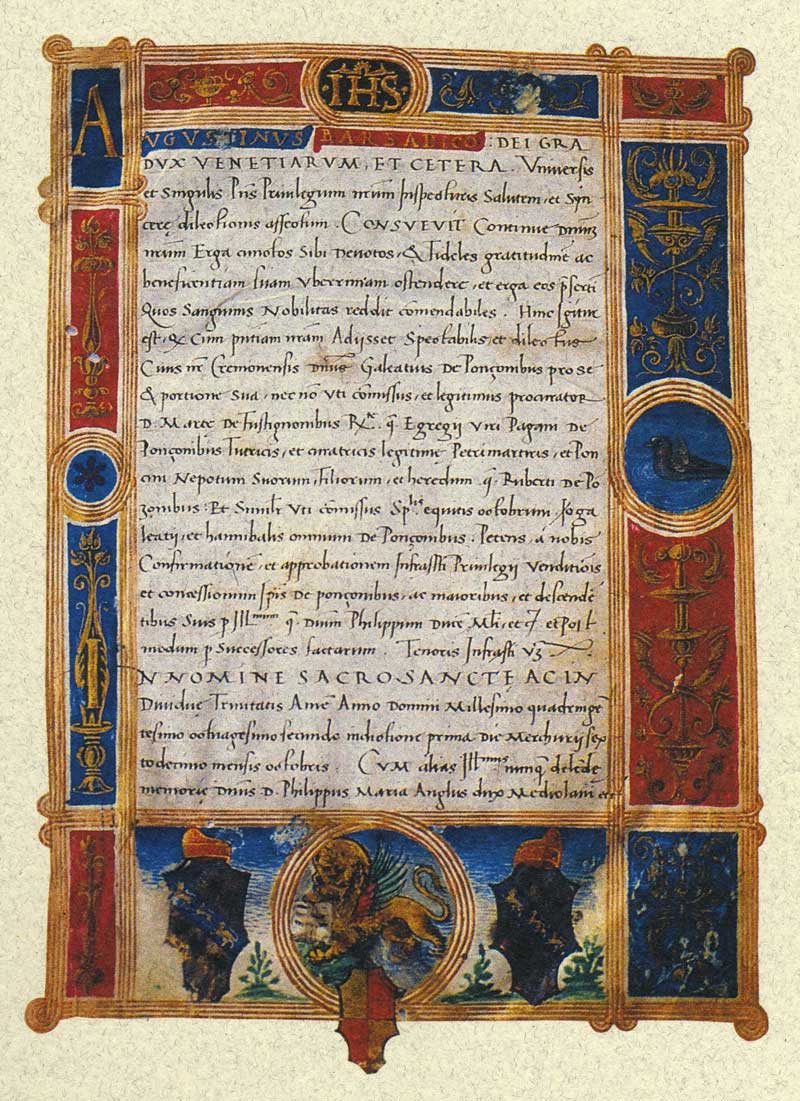 IHS
AUGUSTINUS BARBADICO DEI GRA
DVX VENETIARVM, ET CETERA. Vniversis
et Singulis Pñs Privilegium nrum Inspecturis Salutem, et Syn
cerę dilectionis affectum. CONSVEVIT Continue Dniũ
nrum Erga cunctos Sibi Devotos, & fideles gratitudinẽ ac
beneficentiam suam Vberrimam ostendere, et erga eos p̃serti
Quos Sanguinis Nobilitas reddit comendabiles. Hinc Igitur
est, & Cum pñtiam nram Adijsset Spectabilis, et dilectus
Civis nr Cremonensis Dnus Galeatius De Ponçonibus pro se
& portione Sua, nec nõ Vti cõmissus, et legitimus procurator
D. Martę De Fustignonibus q. Egregij Viri Pagani De
Ponçonibus Tutricis, et curatricis legitimę Petrimartiris, et Pon
cini Nepotum Suorum, Filiorum, et heredum q. Ruberti De Po
zonibus. Et Simili Vti cõmissus equitis octobrium, Ioga
leatij, et hannibalis omnium De Ponçonibus. Petens, à nobis
Confirmationẽ, et approbationem Infrasti Privilegij Venditiõis
et concessionum Ipis De ponçonibus, ac maioribus, et descendẽ
tibus Suis p Illmum q. Dnum Philippum Ducẽ Mli, et
modum p Successores factarum. Tenoris Infrasti Vz
IN NOMINE SACROSANCTE AC IN
Dividuę Trinitatis Amẽ Anno Domini Millesimo quadringẽ
tesimo octuagesimo secundo indictione prima Die Merchurij sex
todecimo mensis octobris. CVM alias Illmus nunq delẽdẽ
memorię Dnus D. Philippus Maria Anglus dux Mediolani et